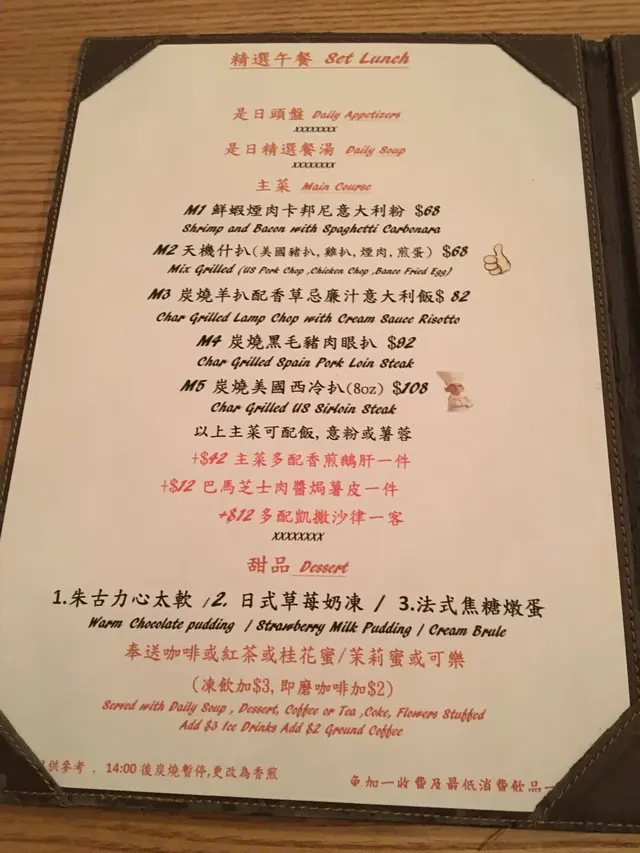 精選午餐 Set Lunch
是日頭盤 Daily Appetizers
xxxxxxxx
是日精選餐湯 Daily Soup
xxxxxxxx
主菜 Main Course
M1 鮮蝦煙肉卡邦尼意大利粉 $68
Shrimp and Bacon with Spaghetti Carbonara
M2 天機什扒(美國豬扒, 雞扒, 煙肉, 煎蛋) $68
Mix Grilled (US Pork Chop ,Chicken Chop ,Banco Fried Egg)
M3 炭燒羊扒配香草忌廉汁意大利飯$ 82
Char Grilled Lamp Chop with Cream Sauce Risotto
M4 炭燒黑毛豬肉眼扒 $92
Char Grilled Spain Pork Loin Steak
M5 炭燒美國西冷扒(8oz) $108
Char Grilled US Sirloin Steak
以上主菜可配飯, 意粉或薯蓉
+$42 主菜多配香煎鵝肝一件
+$12 巴馬芝士肉醬焗薯皮一件
+$12 多配凱撒沙律一客
xxxxxxxx
甜品 Dessert
1.朱古力心太軟 /2. 日式草莓奶凍 / 3.法式焦糖燉蛋
Warm Chocolate pudding / Strawberry Milk Pudding / Cream Brule
奉送咖啡或紅茶或桂花蜜/茉莉蜜或可樂
(凍飲加$3, 即磨咖啡加$2)
Served with Daily Soup , Dessert, Coffee or Tea ,Coke, Flowers Stuffed
Add $3 Ice Drinks Add $2 Ground Coffee
供參考 , 14:00 後炭燒暫停,更改為香煎
加一收費及最低消費飲品一